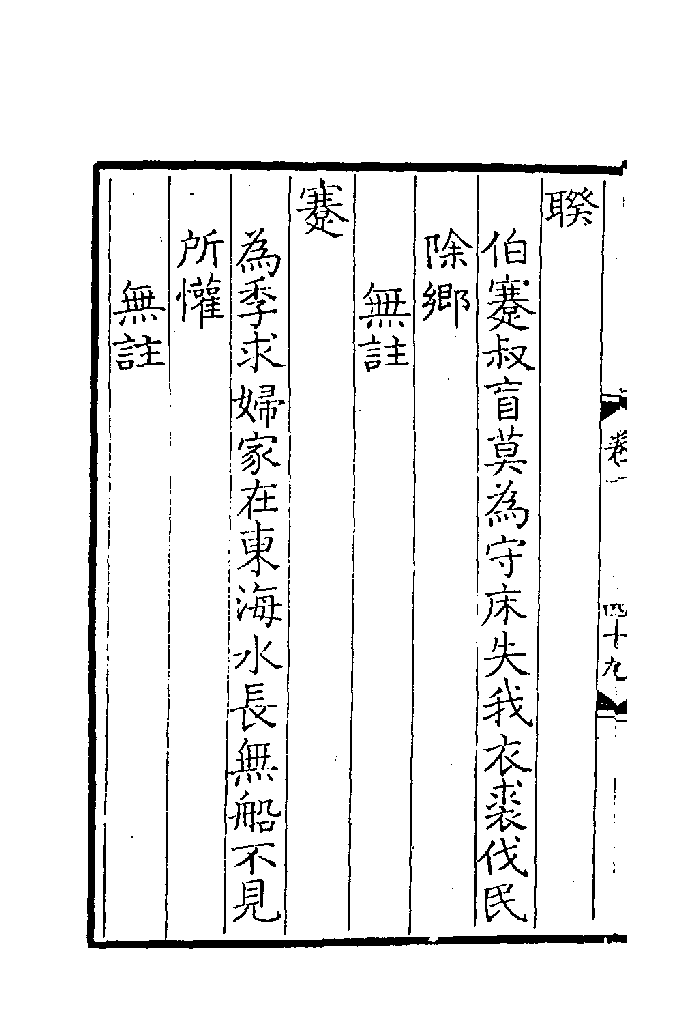 卷一　四十九
聧
伯蹇叔盲莫為守床失我衣裘伐民
除鄉
無註
蹇
為季求婦家在東海水長無船不見
所懽
無註